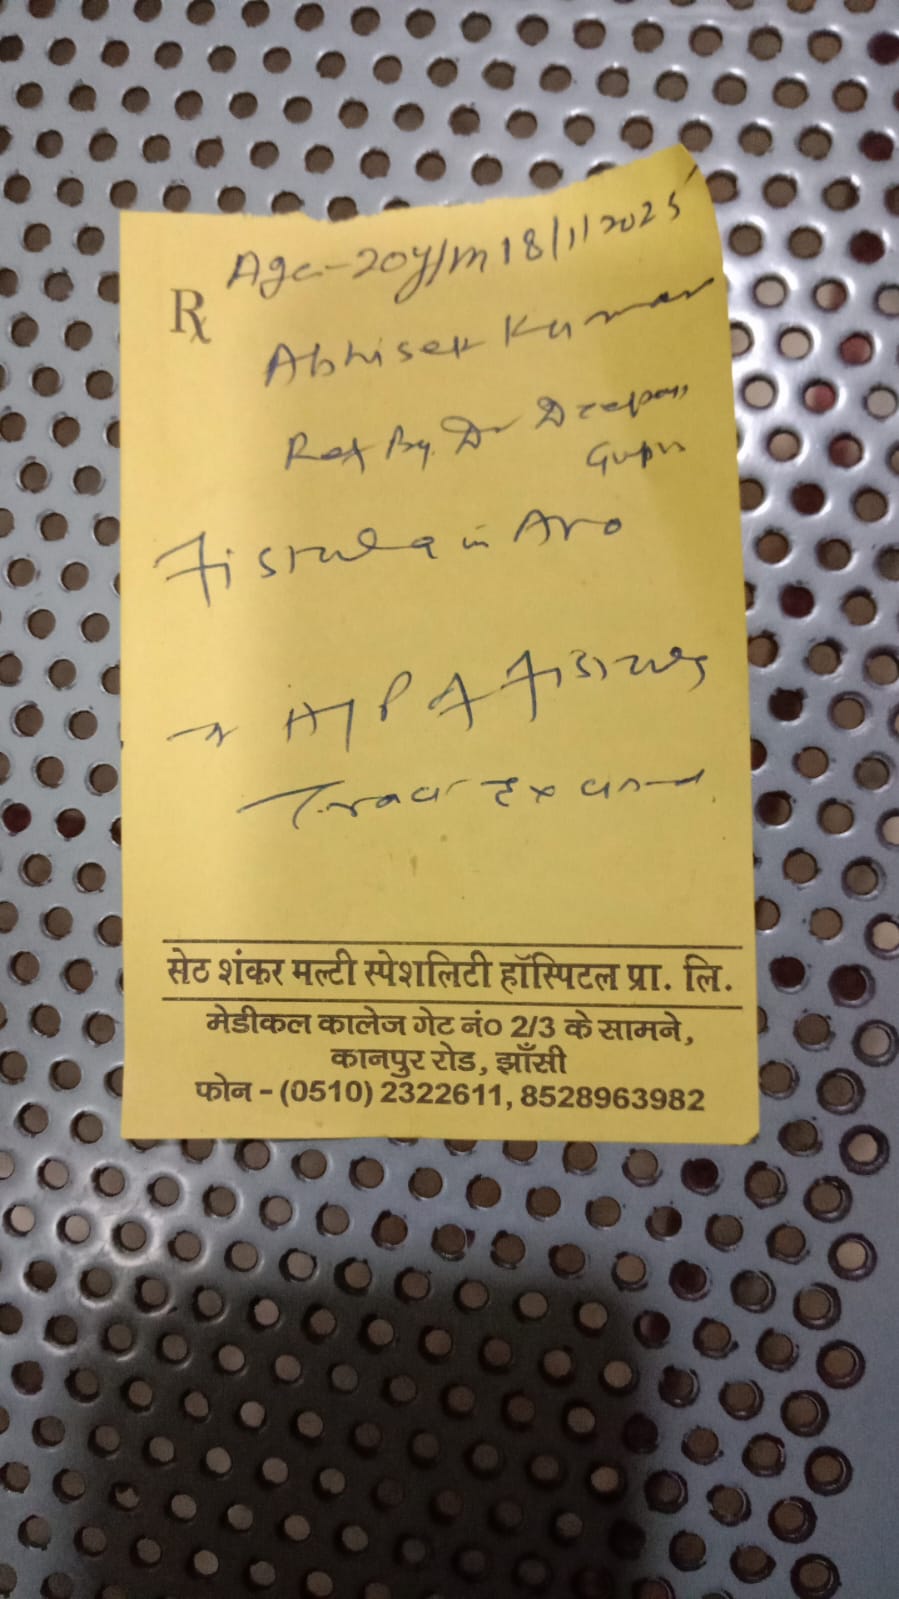 Age-20y/m 18/1/2025
Rx
Abhisek Kumar
Ref By. Dr Deepak
Gupta
Fistula in Ano
→ H/P of Fistula
Tract
सेठ शंकर मल्टी स्पेशलिटी हॉस्पिटल प्रा. लि.
मेडीकल कालेज गेट नं० 2/3 के सामने,
कानपुर रोड, झाँसी
फोन - (0510) 2322611, 8528963982